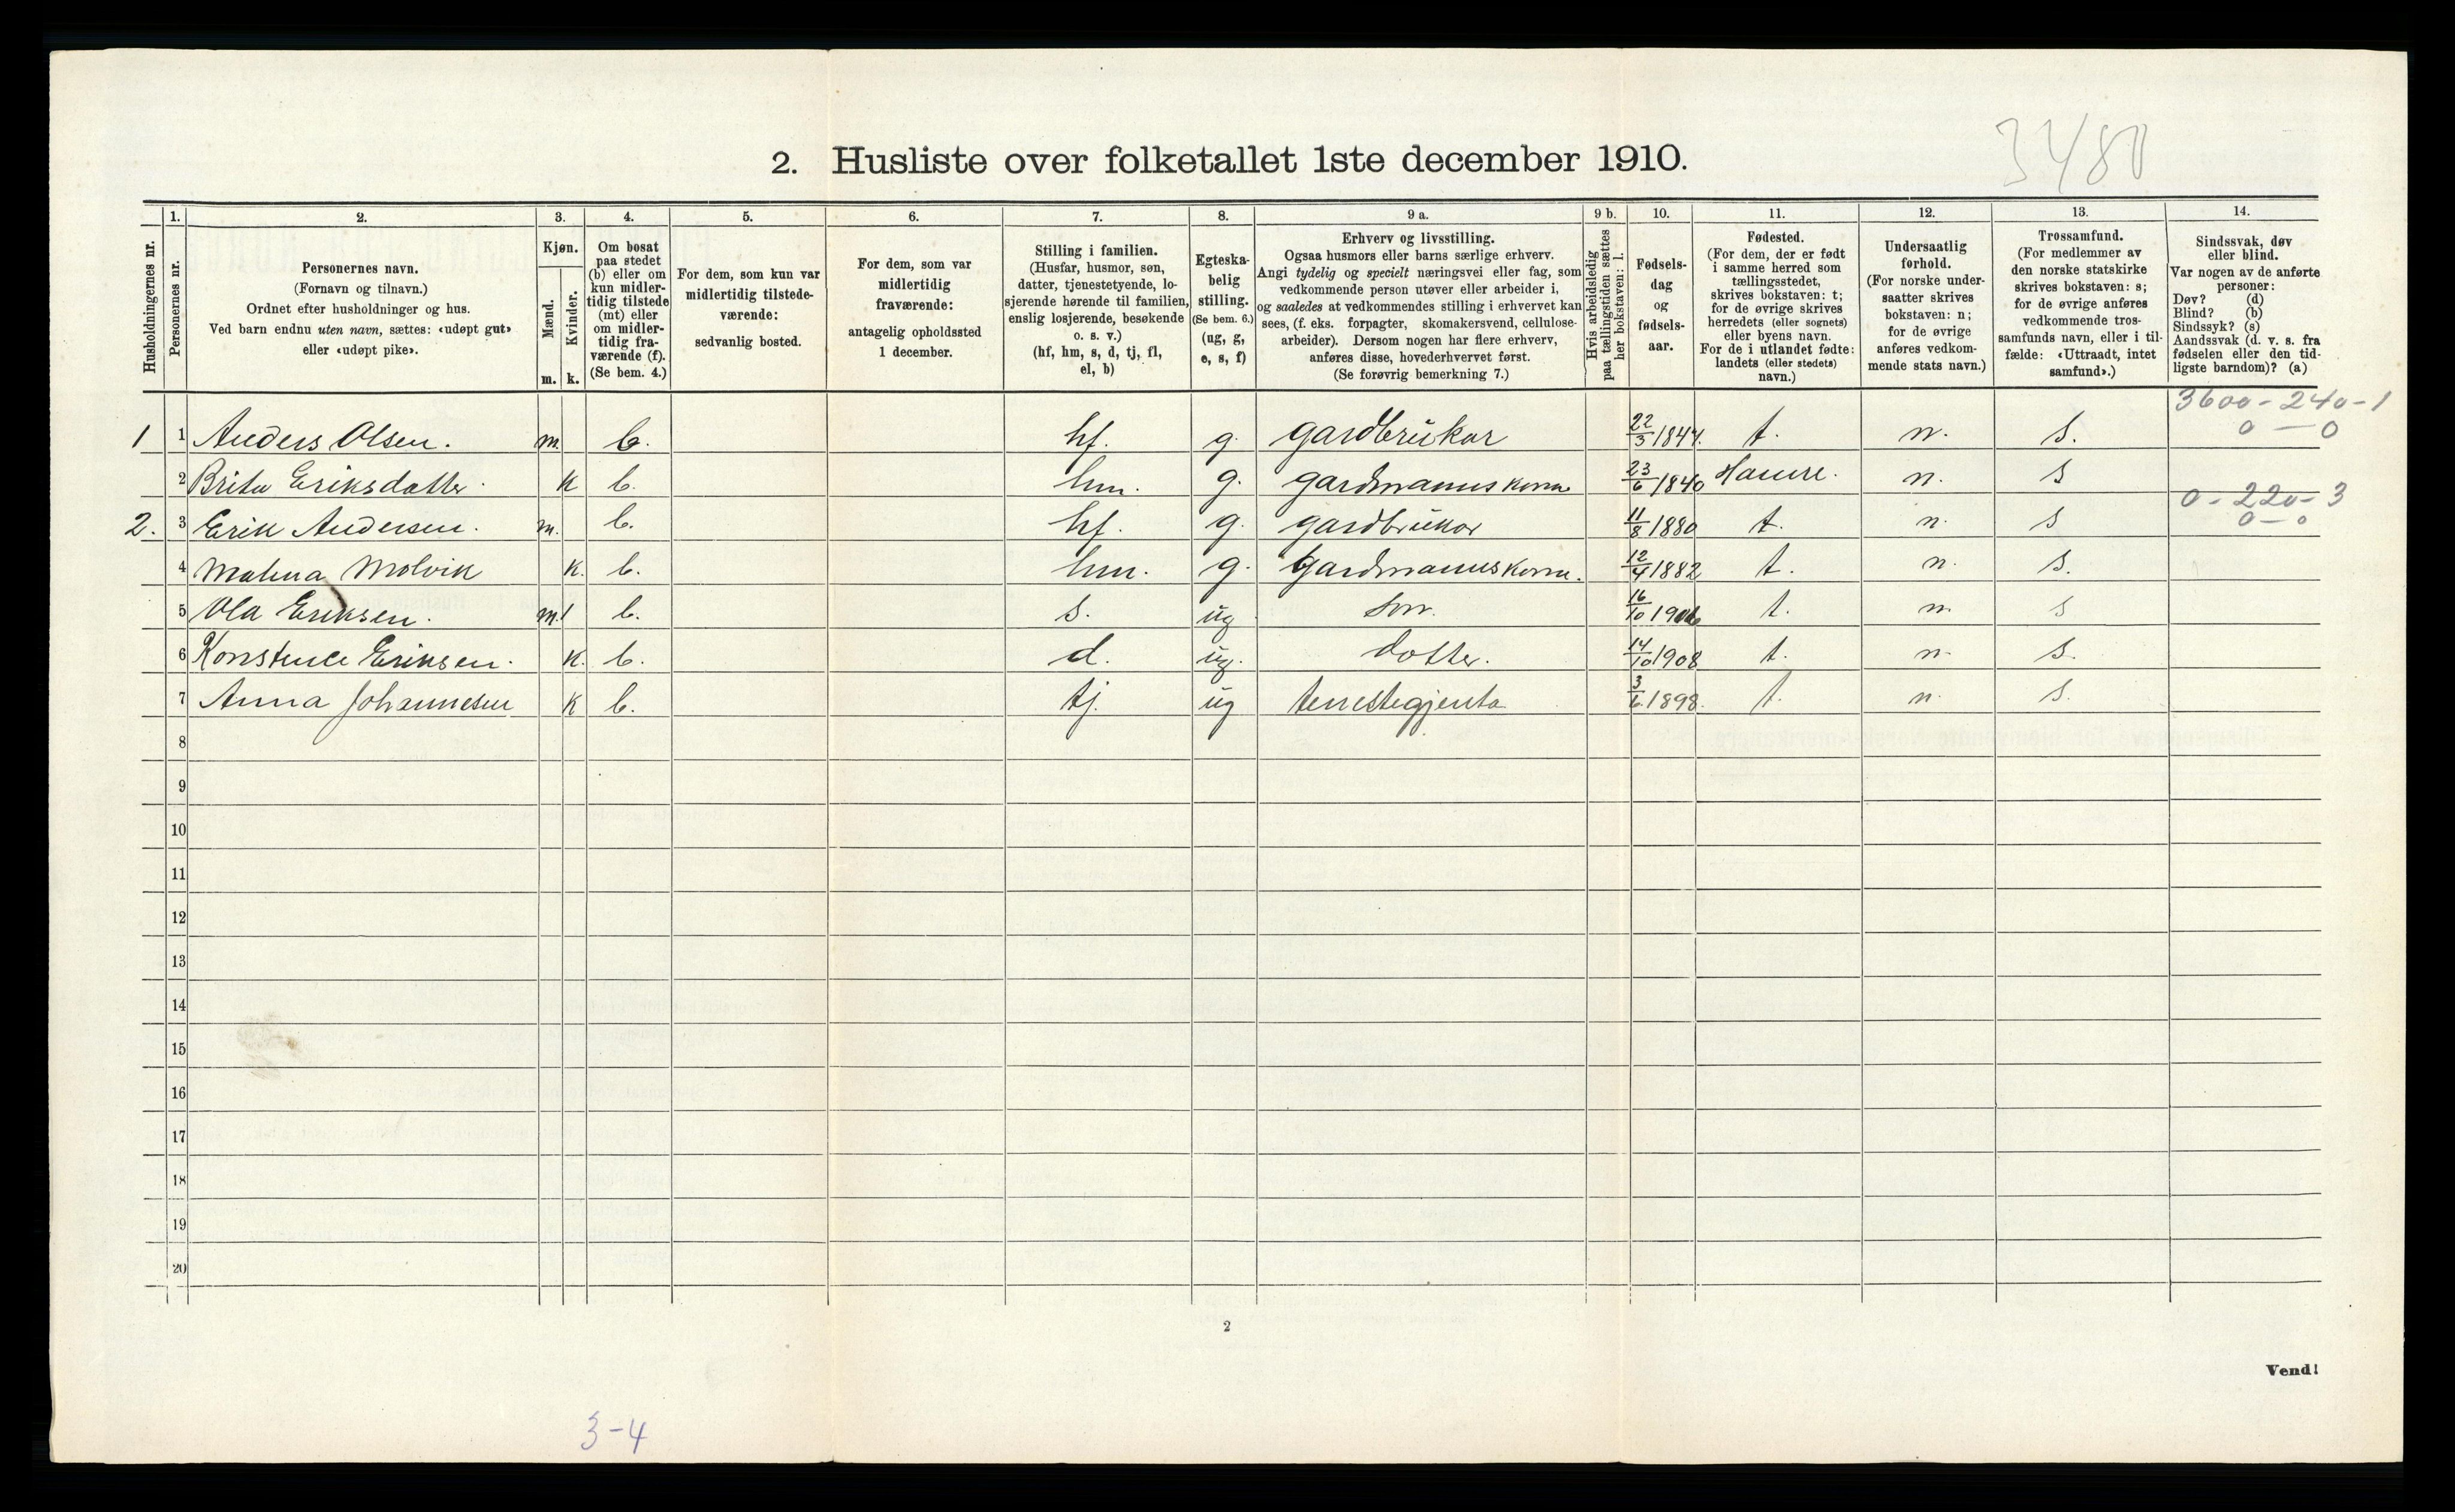 3480
2. Husliste over folketallet 1ste december 1910.
1. 2. 3. 4. 5. 6. 7. 8. 9 a. 9 b. 10. 11. 12. 13. 14.
Husholdningernes nr.
Personernes nr.
Personernes navn.
(Fornavn og tilnavn.)
Ordnet efter husholdninger og hus.
Ved barn endnu uten navn, sættes: «udøpt gut»
eller «udøpt pike».
Kjøn.
Mænd.
Kvinder.
m. k.
Om bosat
paa stedet
(b) eller om
kun midler-
tidig tilstede
(mt) eller
om midler-
tidig fra-
værende (f).
(Se bem. 4.)
For dem, som kun var
midlertidig tilstede-
værende:
sedvanlig bosted.
For dem, som var
midlertidig
fraværende:
antagelig opholdssted
1 december.
Stilling i familien.
(Husfar, husmor, søn,
datter, tjenestetyende, lo-
sjerende hørende til familien,
enslig losjerende, besøkende
o. s. v.)
(hf, hm, s, d, tj, fl,
el, b)
Egteska-
belig
stilling.
(Se bem. 6.)
(ug, g,
e, s, f)
Erhverv og livsstilling.
Ogsaa husmors eller barns særlige erhverv.
Angi tydelig og specielt næringsvei eller fag, som
vedkommende person utøver eller arbeider i,
og saaledes at vedkommendes stilling i erhvervet kan
sees, (f. eks. forpagter, skomakersvend, cellulose-
arbeider). Dersom nogen har flere erhverv,
anføres disse, hovederhvervet først.
(Se forøvrig bemerkning 7.)
Hvis arbeidsledig
paa tællingstiden sættes
her bokstaven: l.
Fødsels-
dag
og
fødsels-
aar.
Fødested.
(For dem, der er født
i samme herred som
tællingsstedet,
skrives bokstaven: t;
for de øvrige skrives
herredets (eller sognets)
eller byens navn.
For de i utlandet fødte:
landets (eller stedets)
navn.)
Undersaatlig
forhold.
(For norske under-
saatter skrives
bokstaven: n;
for de øvrige
anføres vedkom-
mende stats navn.)
Trossamfund.
(For medlemmer av
den norske statskirke
skrives bokstaven: s;
for de øvrige anføres
vedkommende tros-
samfunds navn, eller i til-
fælde: «Uttraadt, intet
samfund».)
Sindssvak, døv
eller blind.
Var nogen av de anførte
personer:
Døv? (d)
Blind? (b)
Sindssyk? (s)
Aandssvak (d. v. s. fra
fødselen eller den tid-
ligste barndom)? (a)
3600-240-1
0 — 0
1 1 Anders Olsen. m. b. hf. g. gardbrukar 22/3 1844. t. n. s.
2 Brita Eriksdatter k b. hm. g. gardmannskona 23/6 1840 Hamre. n. s
0-220-3
0-0
2. 3 Erik Andersen. m. b. hf. g. gardbrukar 11/8 1880 t. n. s
4 Malina Molvik k. b. hm. g. Gardmannskona. 12/4 1882 t. n. s.
5 Ola Eriksen. m. b. s. ug son. 16/10 1906 t. n. s
6 Konstance Eriksen. k. b. d. ug. dotter. 14/10 1908 t. n. s.
7 Anna Johannesen k b. tj. ug tenestegjenta 3/6 1898. t. n. s.
8
9
10
11
12
13
14
15
16
17
18
19
20
2
Vend!
3-4